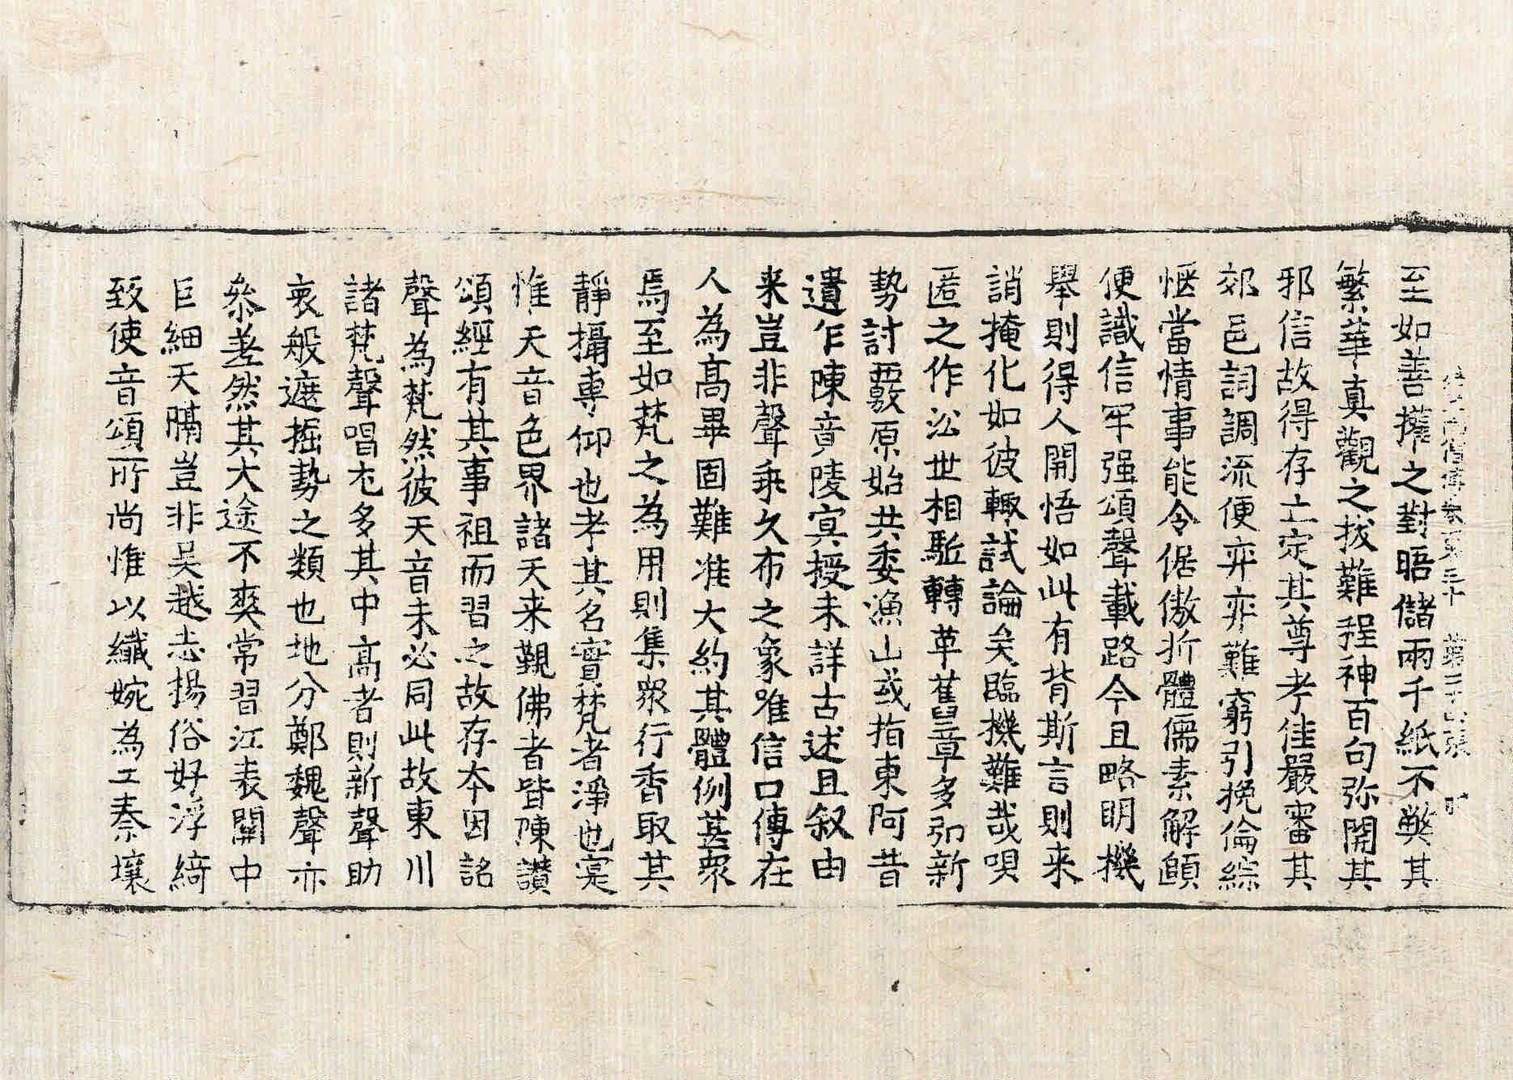 至如善權之對晤儲兩千紙不弊其
繁華真觀之拔難程神百句弥開其
邪信故得存亡定其尊考佳嚴審其
郊邑詞調流便弈弈難窮引挽倫綜
愜當情事能令倨傲折體儒素解頤
便識信牢强頌聲載路今且略明機
舉則得人開悟如此有背斯言則来
誚掩化如彼輙試論矣臨機難哉唄
匿之作沿世相驅轉革舊章多弘新
勢討覈原始共委漁山或指東阿昔
遺乍陳竟陵冥授未詳古述且叙由
来豈非聲乘久布之象唯信口傳在
人為高畢固難准大約其體例甚衆
焉至如梵之為用則集衆行香取其
静攝專仰也考其名實梵者淨也寔
惟天音色界諸天来覲佛者皆陳讚
頌經有其事祖而習之故存本因詺
聲為梵然彼天音未必同此故東川
諸梵聲唱尤多其中高者則新聲助
哀般遮掘勢之類也地分鄭魏聲亦
叅差然其大途不爽常習江表關中
巨細天隔豈非吴越志揚俗好浮綺
致使音頌所尚惟以纖婉為工秦壤